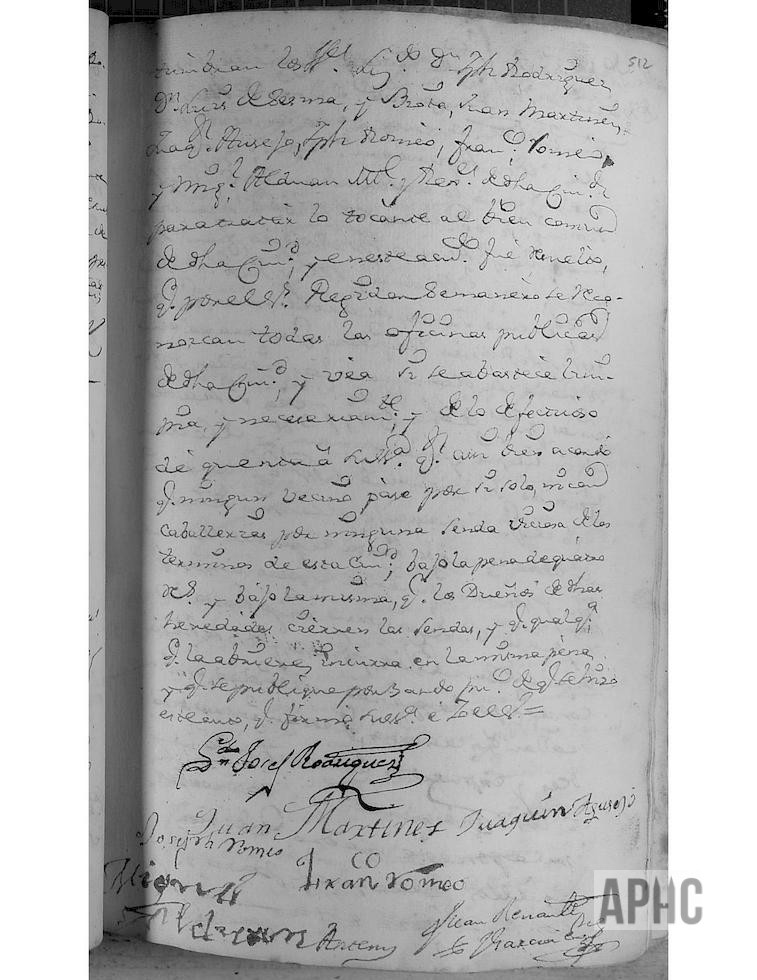 512
Dn. Jph Rodriguez
Dn. Luis de Sesma, y Juan Martines,
Ausejo, Jph Romeo, Franco. Romeo,
y Migl. Aldunan
para tratar lo tocante al bien comun
de dha Ciud. y fue resuelto,
q. por el Sr. Regidor Semanero se reco-
nozcan todas las oficinas publicas
de dha Ciud. y vea si se abastece
y necesariamte. y de lo defectuoso
de quenta a q. asi bien acordó
q. ningun vecino pase por si solo, ni con
caballerias por ninguna senda viciosa de los
terminos de esta Ciud. bajo la pena de quatro
rs. y bajo la misma, q. los Dueños de dhas
heredades cierren las sendas, y q. qualqa.
q. la abriere, incurra en la misma pena,
y q. se publique por Bando de q. se hizo
este auto, q. firmó
Ldo. Dn. Josef Rodriguez
Juan Martines Juaquin Ausejo
Joseph Romeo
Franco Romeo
Miguel
Antemi Juan
Garcia
APHC